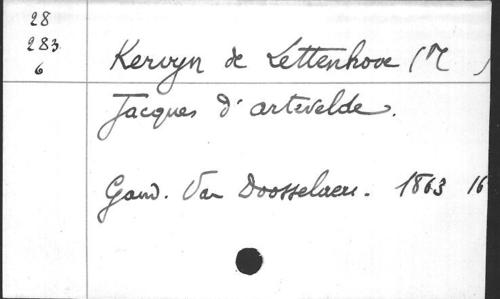 28
283
6
Kervyn de Lettenhove (M )
Jacques d'artevelde.
Gand. Van Doosselaere. 1863 16